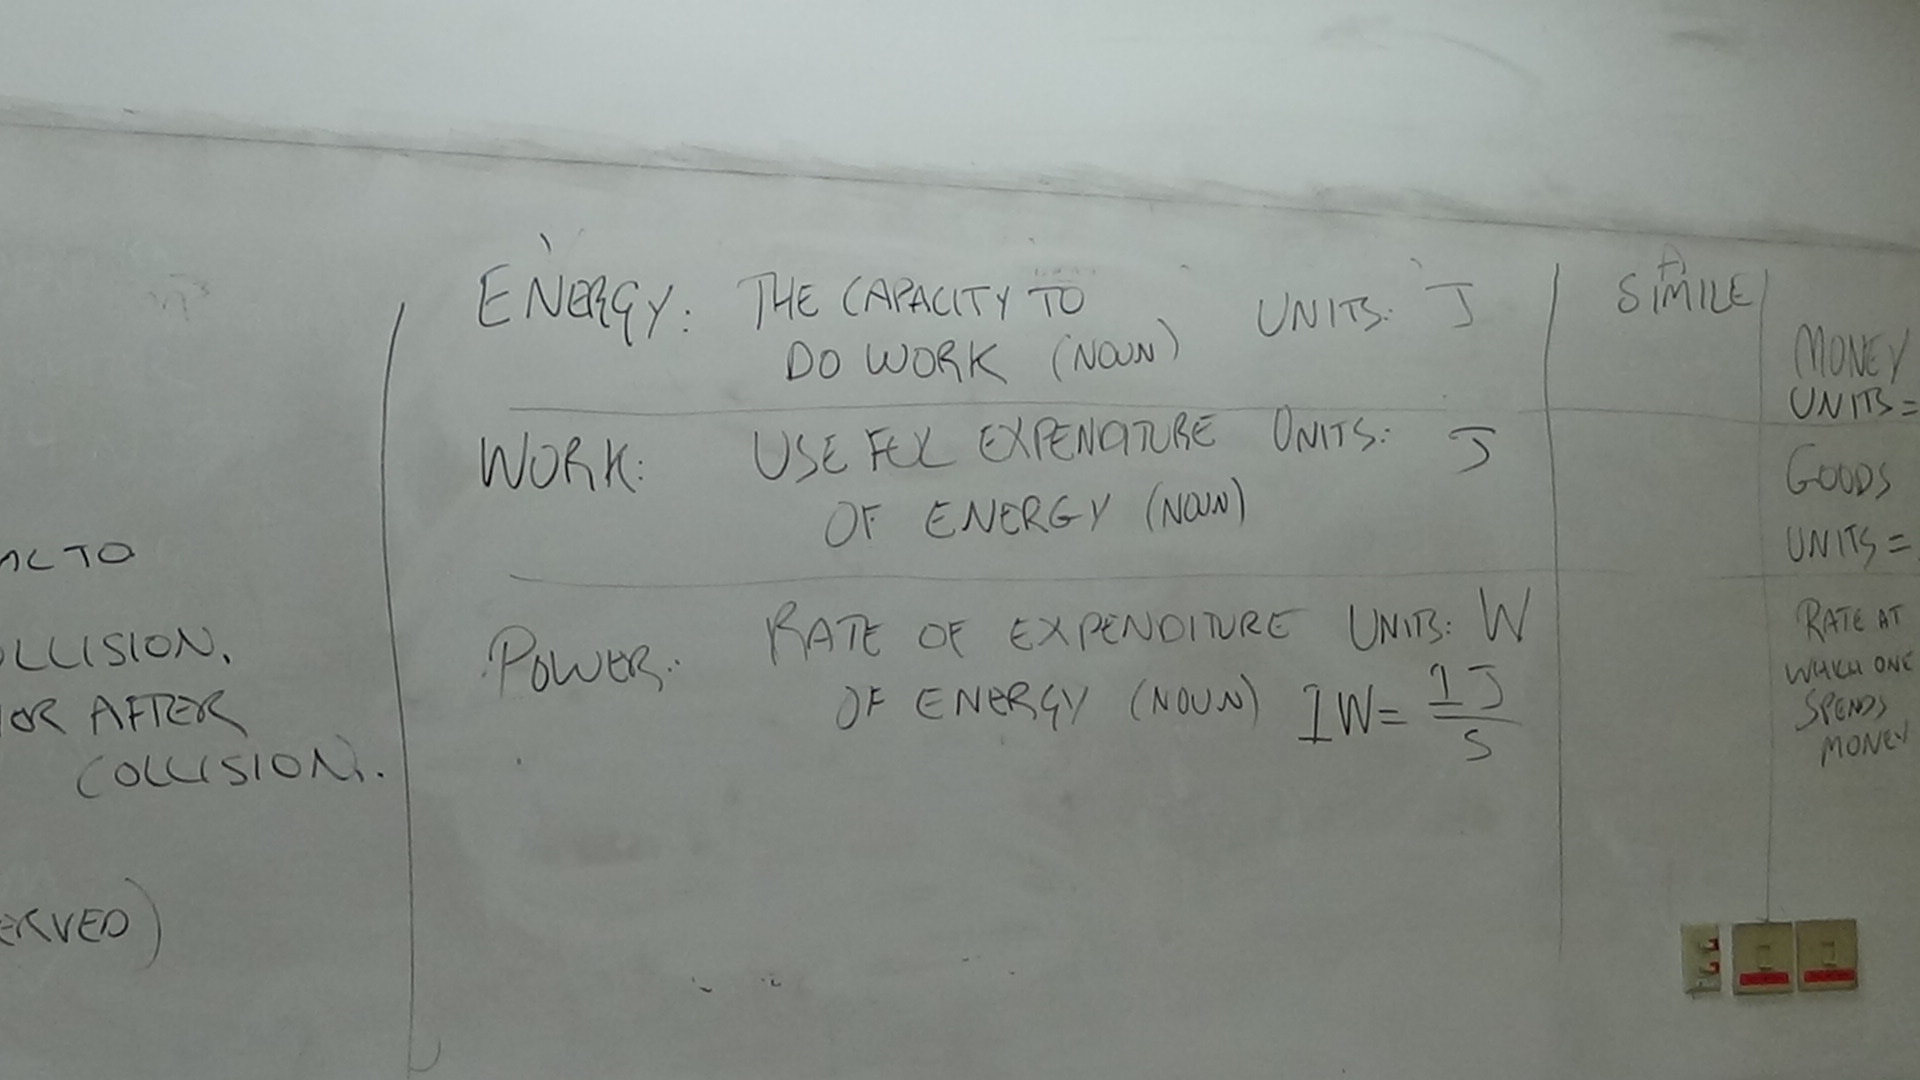 ENERGY: THE CAPACITY TO UNITS: J
DO WORK (NOUN)
WORK: USEFUL EXPENDITURE UNITS: J
OF ENERGY (NOUN)
POWER: RATE OF EXPENDITURE UNITS: W
OF ENERGY (NOUN) 1W = 1J
S
A
SIMILE
MONEY
UNITS =
GOODS
UNITS =
RATE AT
WHICH ONE
SPENDS
MONEY
TO
OLLISION.
OR AFTER
COLLISION.
ERVED)